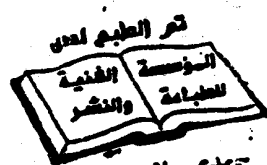 تم الطبع لدى
المؤسسة الفنية
للطباعة والنشر